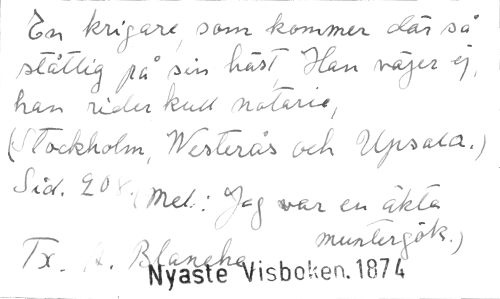 En krigare, som kommer där så
ståttig på sin häst, Han väjer ej,
han rider kull notarie,
(Stockholm, Westerås och Upsala.)
Sid. 208. (Mel.: Jag var en äkta
muntergök.)
Tx. A. Blanche
Nyaste Visboken. 1874